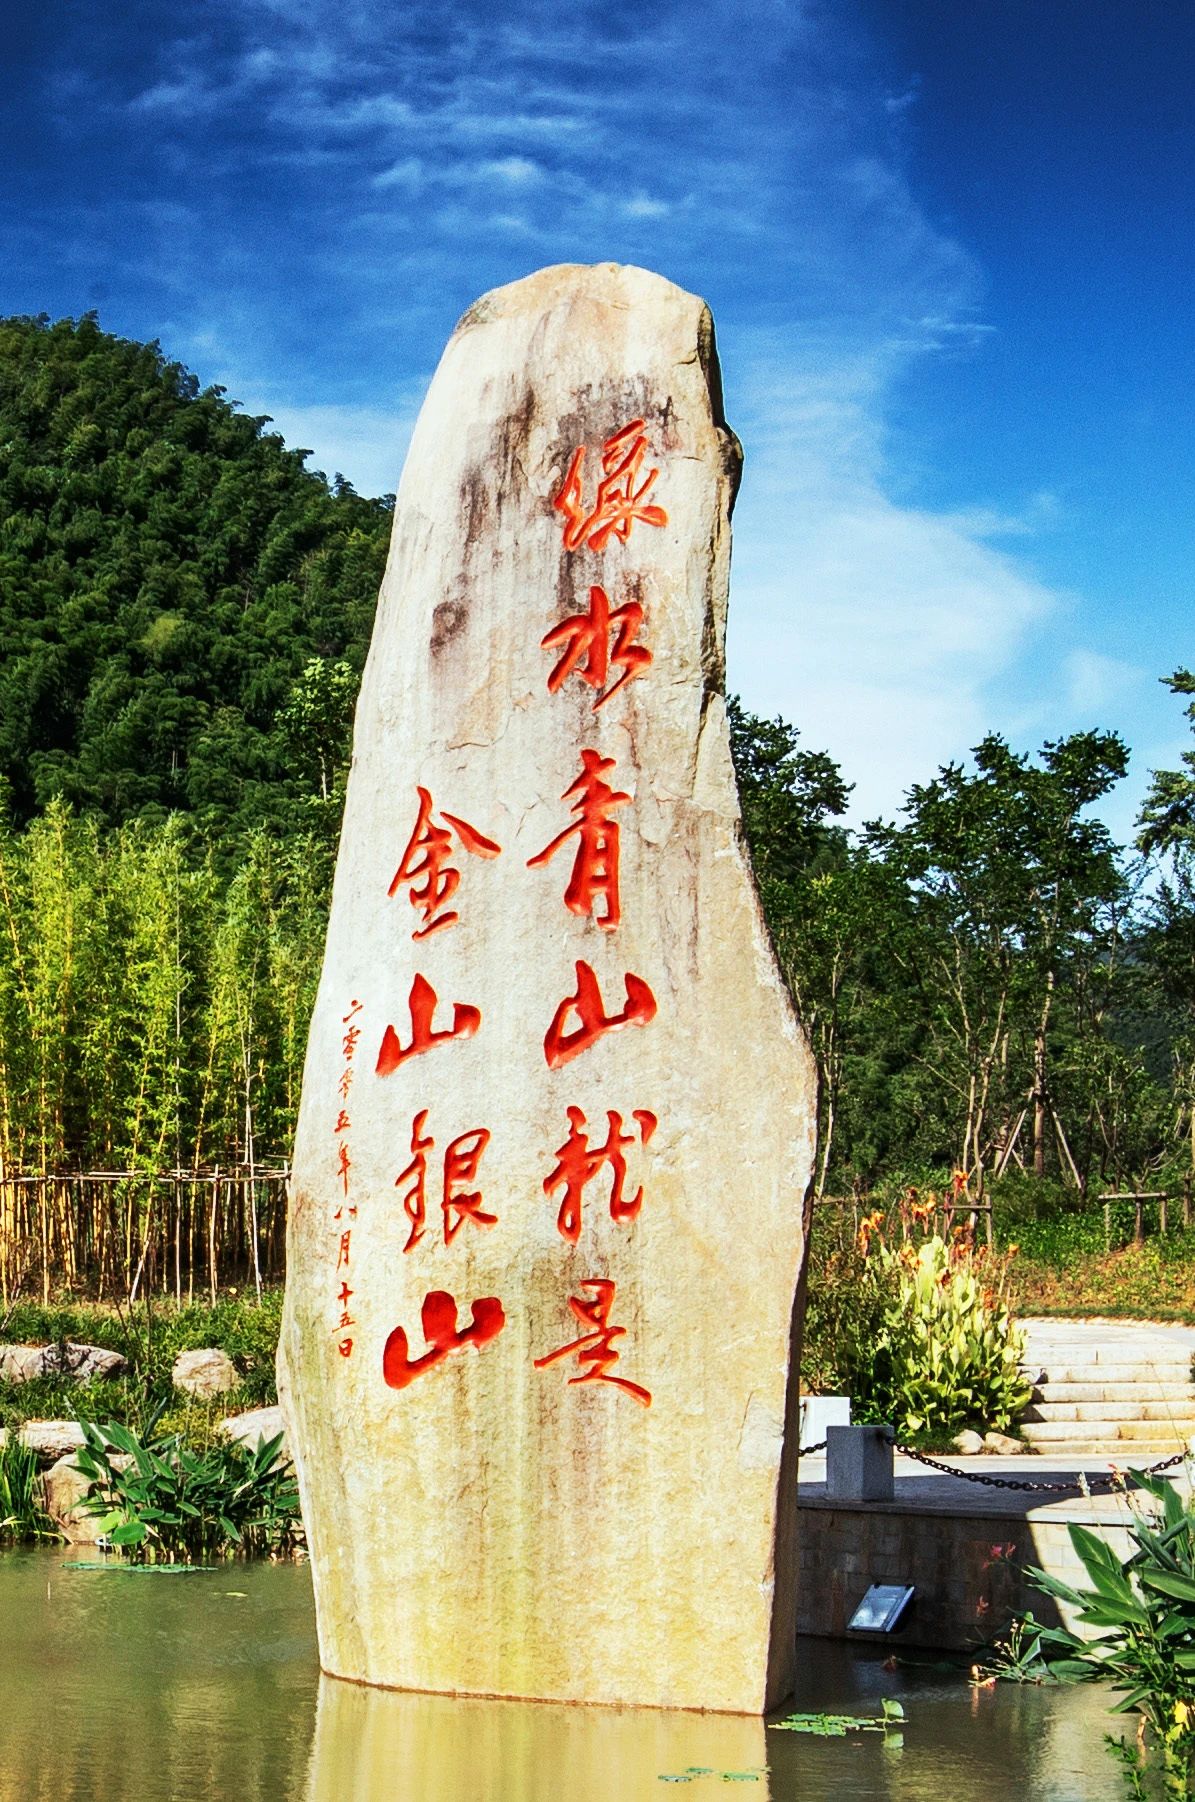 绿水青山就是
金山银山
二零零五年八月十五日